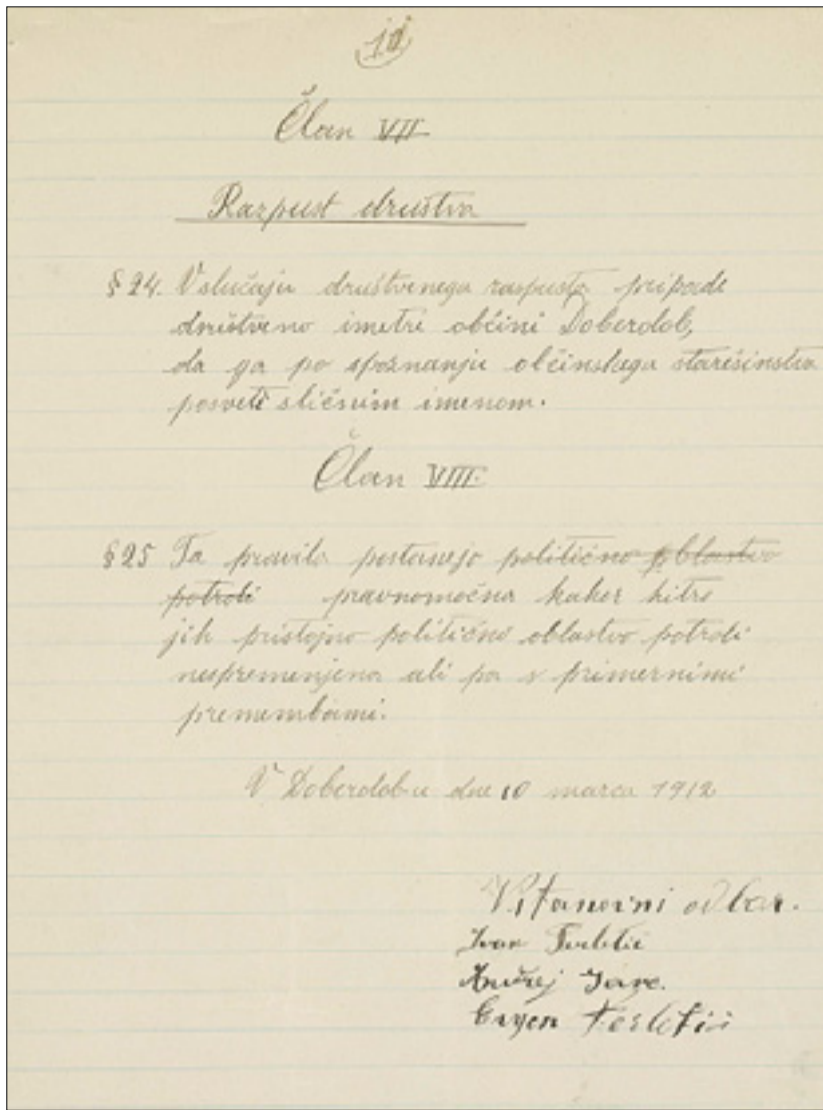 10
Član VII
Razpust društva
§ 24. V slučaju društvenega razpusta pripade
društveno imetje občini Doberdob,
da ga po spoznanju občinskega starešinstva
posveti sličnim imenom.
Član VIII.
§ 25 Ta pravila postanejo politično oblastvo
potrdi pravnomočna kaker hitro
jih pristojno politično oblastvo potrdi
nespremenjena ali pa s primernimi
premembami.
V Doberdobu dne 10 marca 1912
odbor.
Ivan
Andrej Jarc.